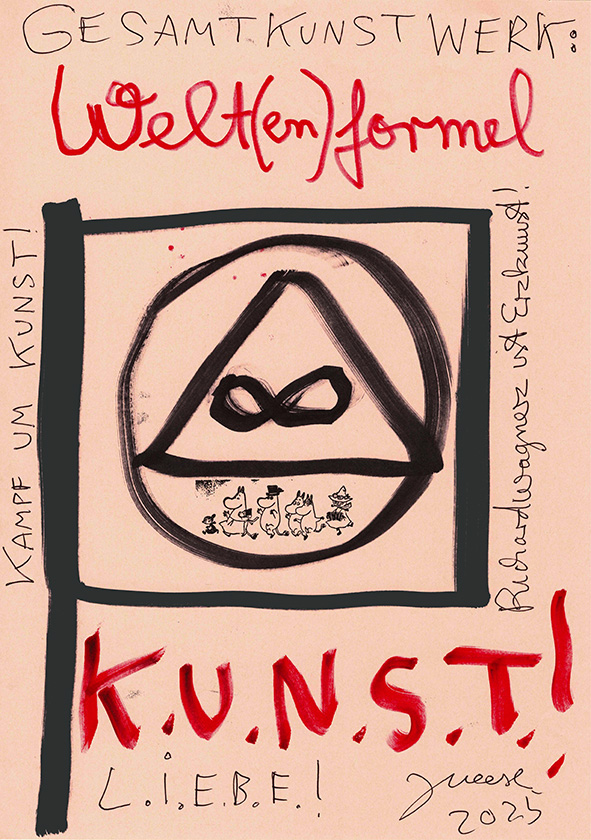 GESAMTKUNSTWERK:
Welt(en)formel
KAMPF UM KUNST!
Richardwagnerz ist Erzkunst!
K.U.N.S.T.!
L.i.E.B.E.!
JMeese
2025